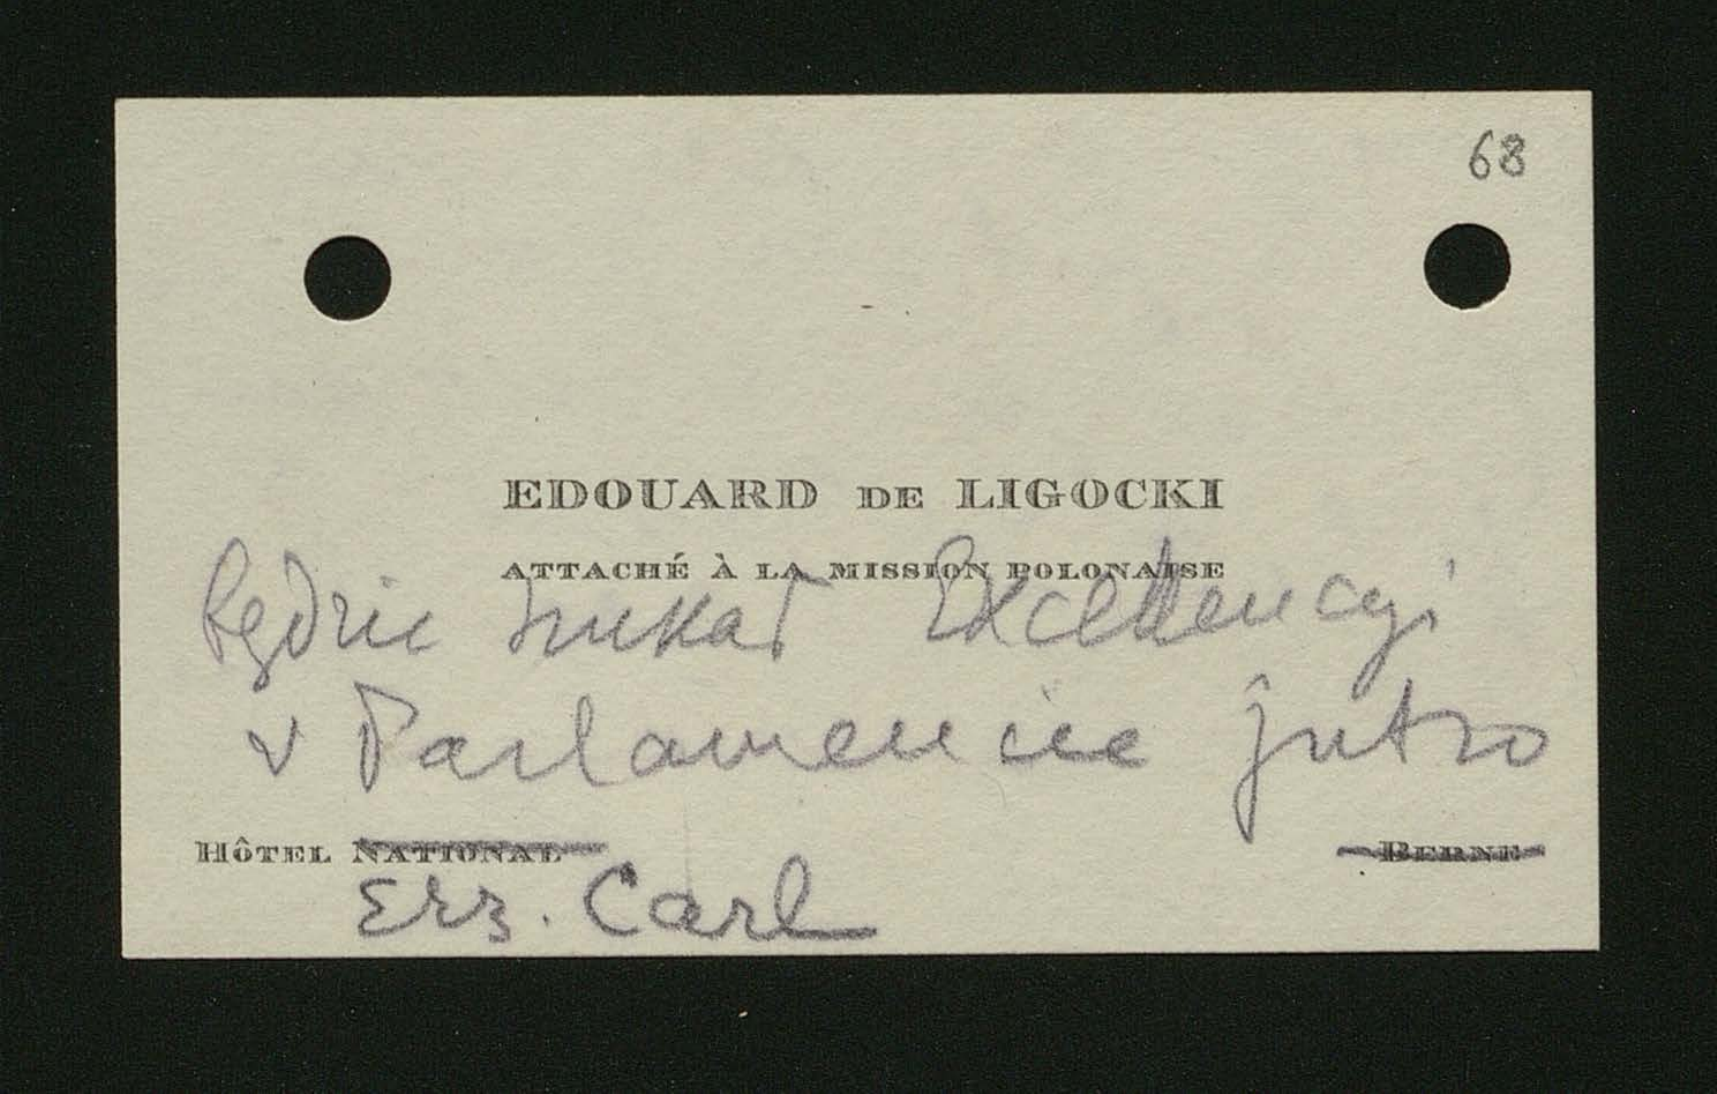 68
EDOUARD DE LIGOCKI
ATTACHÉ À LA MISSION POLONAISE
będzie szukał Excellencyi
w Parlamencie jutro
HÔTEL NATIONAL BERNE
Erz. Carl